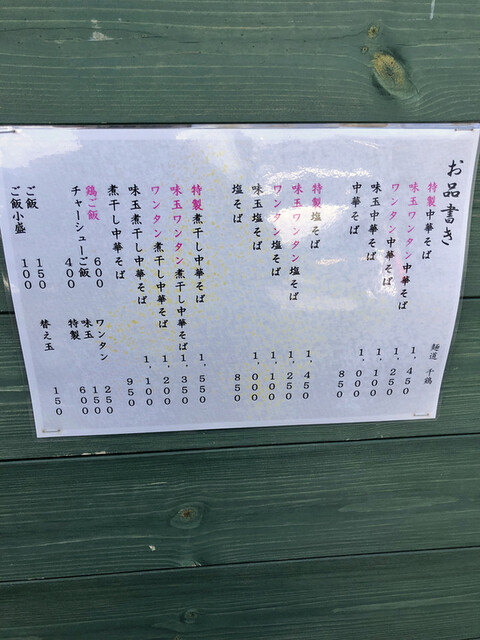 お品書き
麺道 千鶏
特製中華そば 1,450
味玉ワンタン中華そば 1,250
ワンタン中華そば 1,100
味玉中華そば 1,000
中華そば 850
特製塩そば 1,450
味玉ワンタン塩そば 1,250
ワンタン塩そば 1,100
味玉塩そば 1,000
塩そば 850
特製煮干し中華そば 1,550
味玉ワンタン煮干し中華そば 1,350
ワンタン煮干し中華そば 1,200
味玉煮干し中華そば 1,100
煮干し中華そば 950
鶏ご飯 600
チャーシューご飯 400
ご飯 150
ご飯小盛 100
ワンタン 250
味玉 150
特製 600
替え玉 150